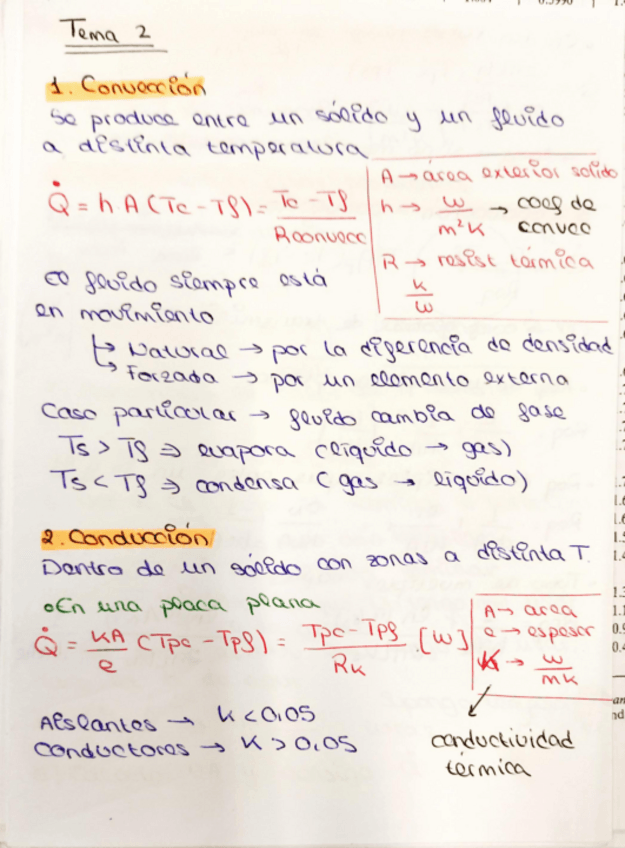 Tema 2
1. Convección
Se produce entre un sólido y un fluido
a distinta temperatura
Q̇ = h A (Tc - Tf) = Tc - Tf / Rconvecc
A → área exterior solido
h → w / m²K → coef de
convec
R → resist térmica
k / w
El fluido siempre está
en movimiento
↳ Natural → por la diferencia de densidad
↳ Forzada → por un elemento externa
Caso particular → fluido cambia de fase
Ts > Tf ⇒ evapora (líquido → gas)
Ts < Tf ⇒ condensa (gas → líquido)
2. Conducción
Dentro de un sólido con zonas a distinta T.
• En una placa plana
Q̇ = KA / e (Tpc - Tpf) = Tpc - Tpf / RK . [w]
A → area
e → espesor
K → w / mK
conductividad
térmica
Aislantes → K < 0,05
Conductores → K > 0,05